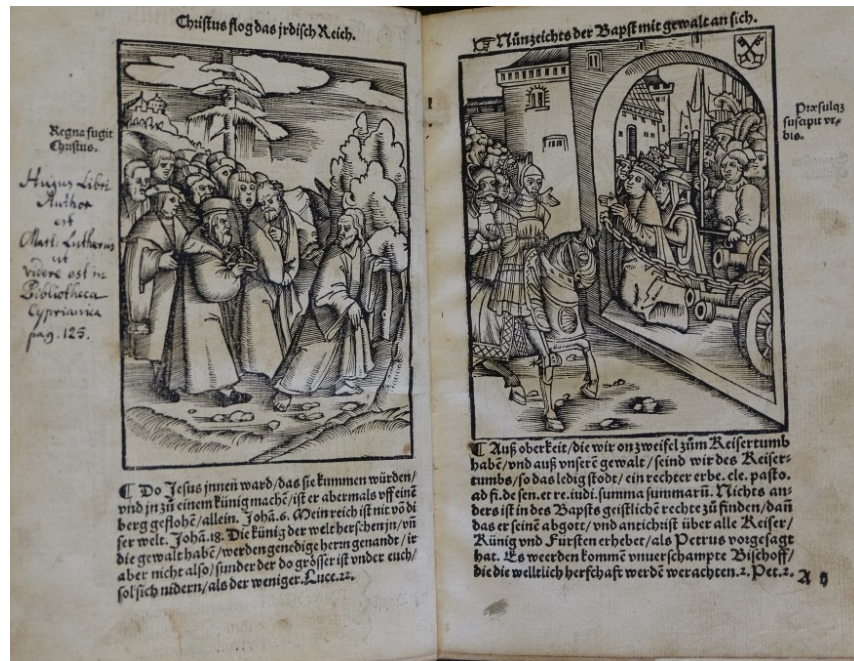 Christus flog das jrdisch Reich.
Regna fugit
Christus.
Hujus Libri
Author
est
Mart. Lutherus
ut
videre est in
Bibliotheca
Cyprianica
pag. 125.
¶ Do Jesus jnnen ward/das sie kummen würden/
vnd jn zů einem künig machē/ist er abermals vff einē
berg geflohē/allein. Johā.6. Mein reich ist nit võ di
ser welt. Johā.18. Die künig der welt herschen jn/vñ
die gewalt habē/werden genedige herrn genandt/ir
aber nicht also/sunder der do grösser ist vnder euch/
sol sich nidern/als der weniger. Luce.22.
☞ Nůn zeichts der Bapst mit gewalt an sich.
Præsulqz
suscipit vr-
bis.
¶ Auß oberkeit/die wir on zweifel zům Keisertumb
habē/vnd auß vnserē gewalt/seind wir des Keiser-
tumbs/so das ledig stodt/ein rechter erbe. cle. pasto.
ad fi. de sen. et re. iudi. summa summarū. Nichts an-
ders ist in des Bapsts geistlichē rechte zů finden/dañ
das er seinē abgott/vnd antichrist über alle Keiser/
Künig vnd Fursten erhebet/als Petrus vorgesagt
hat. Es weerden kommē vnuerschampte Bischoff/
die die welltlich herschaft werdē werachten.2.Pet.2.
A